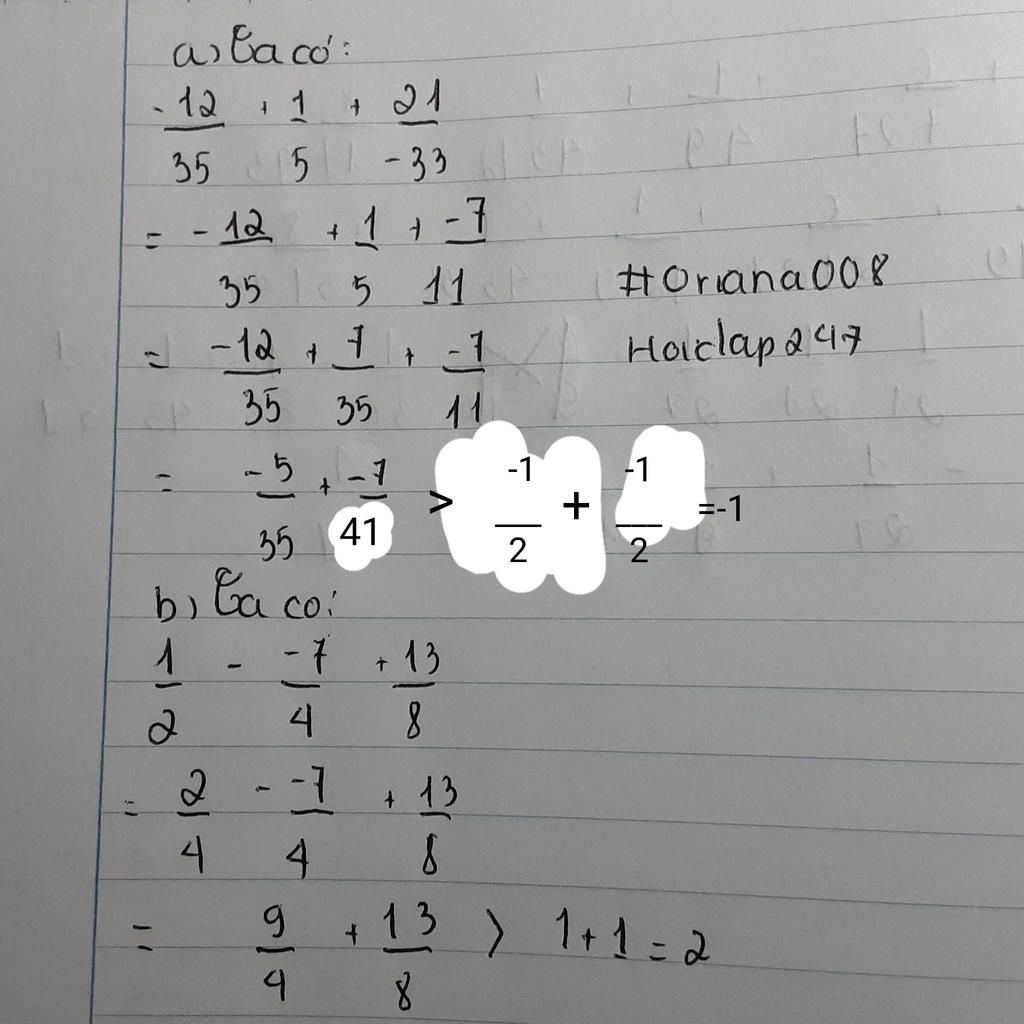 a) Ta có:
-12/35 + 1/5 + 21/-33
= -12/35 + 1/5 + -7/11
#Oriana008
= -12/35 + 7/35 + -7/11
Hoidap247
= -5/35 + -7/41 > -1/2 + -1/2 =-1
b) Ta co:
1/2 - -7/4 + 13/8
= 2/4 - -7/4 + 13/8
= 9/4 + 13/8 > 1+1=2